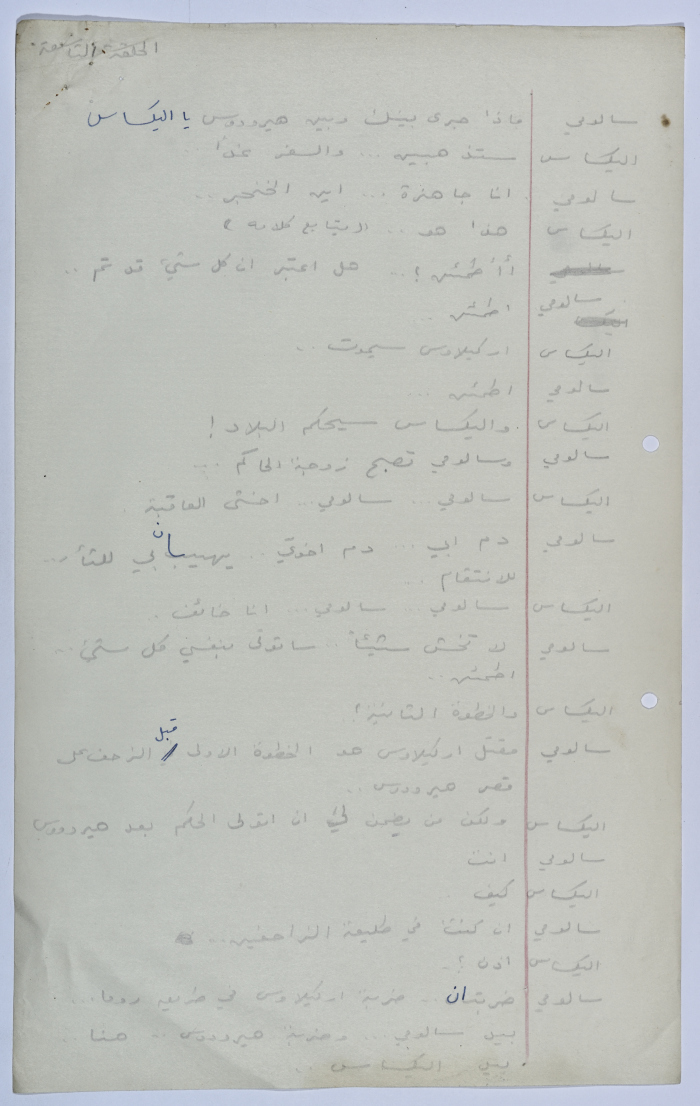 الحلقة التاسعة
سالومي ماذا جرى بينك وبين هيرودوس يا اليكساس
اليكساس ستذهبين ... والسفر غداً
سالومي انا جاهزة ... اين الخنجر ..
اليكساس هذا هو .. لا يتابع كلامه ؟
أأطمئن ؟ .. هل اعتبر ان كل شيء قد تم ..
سالومي اطمئن ..
اليكساس اركيلاوس سيموت ..
سالومي اطمئن ...
اليكساس واليكساس سيحكم البلاد !
سالومي وسالومي تصبح زوجة الحاكم ...
اليكساس سالومي ... سالومي ... اخشى العاقبة .
سالومي دم ابي ... دم اخوتي .. يهيبان بي للثأر ..
للانتقام ..
اليكساس سالومي .. سالومي ... انا خائف .
سالومي لا تخش شيئاً .. ساتولى بنفسي كل شيء ..
اطمئن ..
اليكساس والخطوة الثانية ؟
سالومي مقتل اركيلاوس هو الخطوة الاولى قبل الزحف على
قصر هيرودوس ..
اليكساس ولكن من يضمن لي ان اتولى الحكم بعد هيرودوس
سالومي انت
اليكساس كيف
سالومي ان كنت في طليعة الزاحفين ..
اليكساس اذن ؟ ..
سالومي ضربتان .. ضربة اركيلاوس في طريق روما ...
بيد سالومي ... وضربة هيرودوس .. هنا ...
بيد اليكساس ..